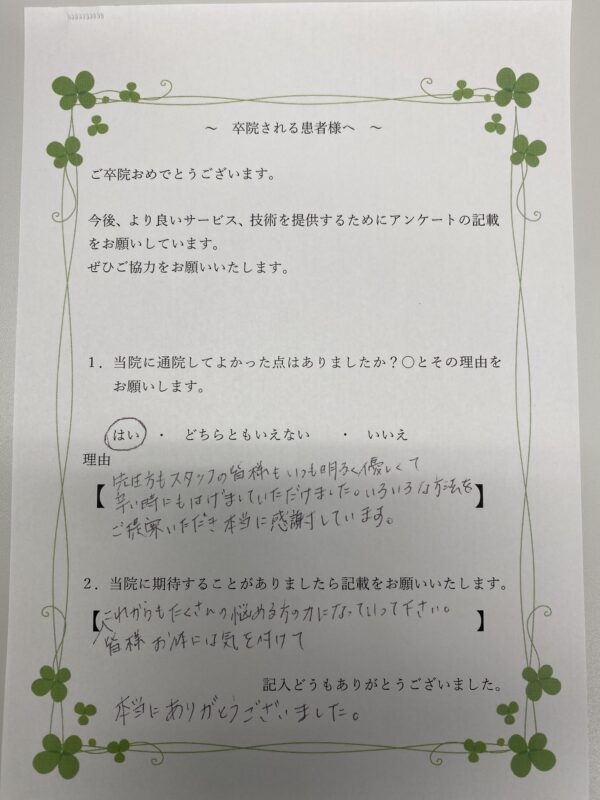 ～ 卒院される患者様へ ～
ご卒院おめでとうございます。
今後、より良いサービス、技術を提供するためにアンケートの記載
をお願いしています。
ぜひご協力をお願いいたします。
1．当院に通院してよかった点はありましたか？〇とその理由を
お願いします。
はい ・ どちらともいえない ・ いいえ
理由
【先生方もスタッフの皆様もいつも明るく優しくて
辛い時にもはげましていただけました。いろいろな方法を
ご提案いただき本当に感謝しています。】
2．当院に期待することがありましたら記載をお願いいたします。
【これからもたくさんの悩める方の力になっていって下さい。
皆様 お体には気を付けて】
記入どうもありがとうございました。
本当にありがとうございました。